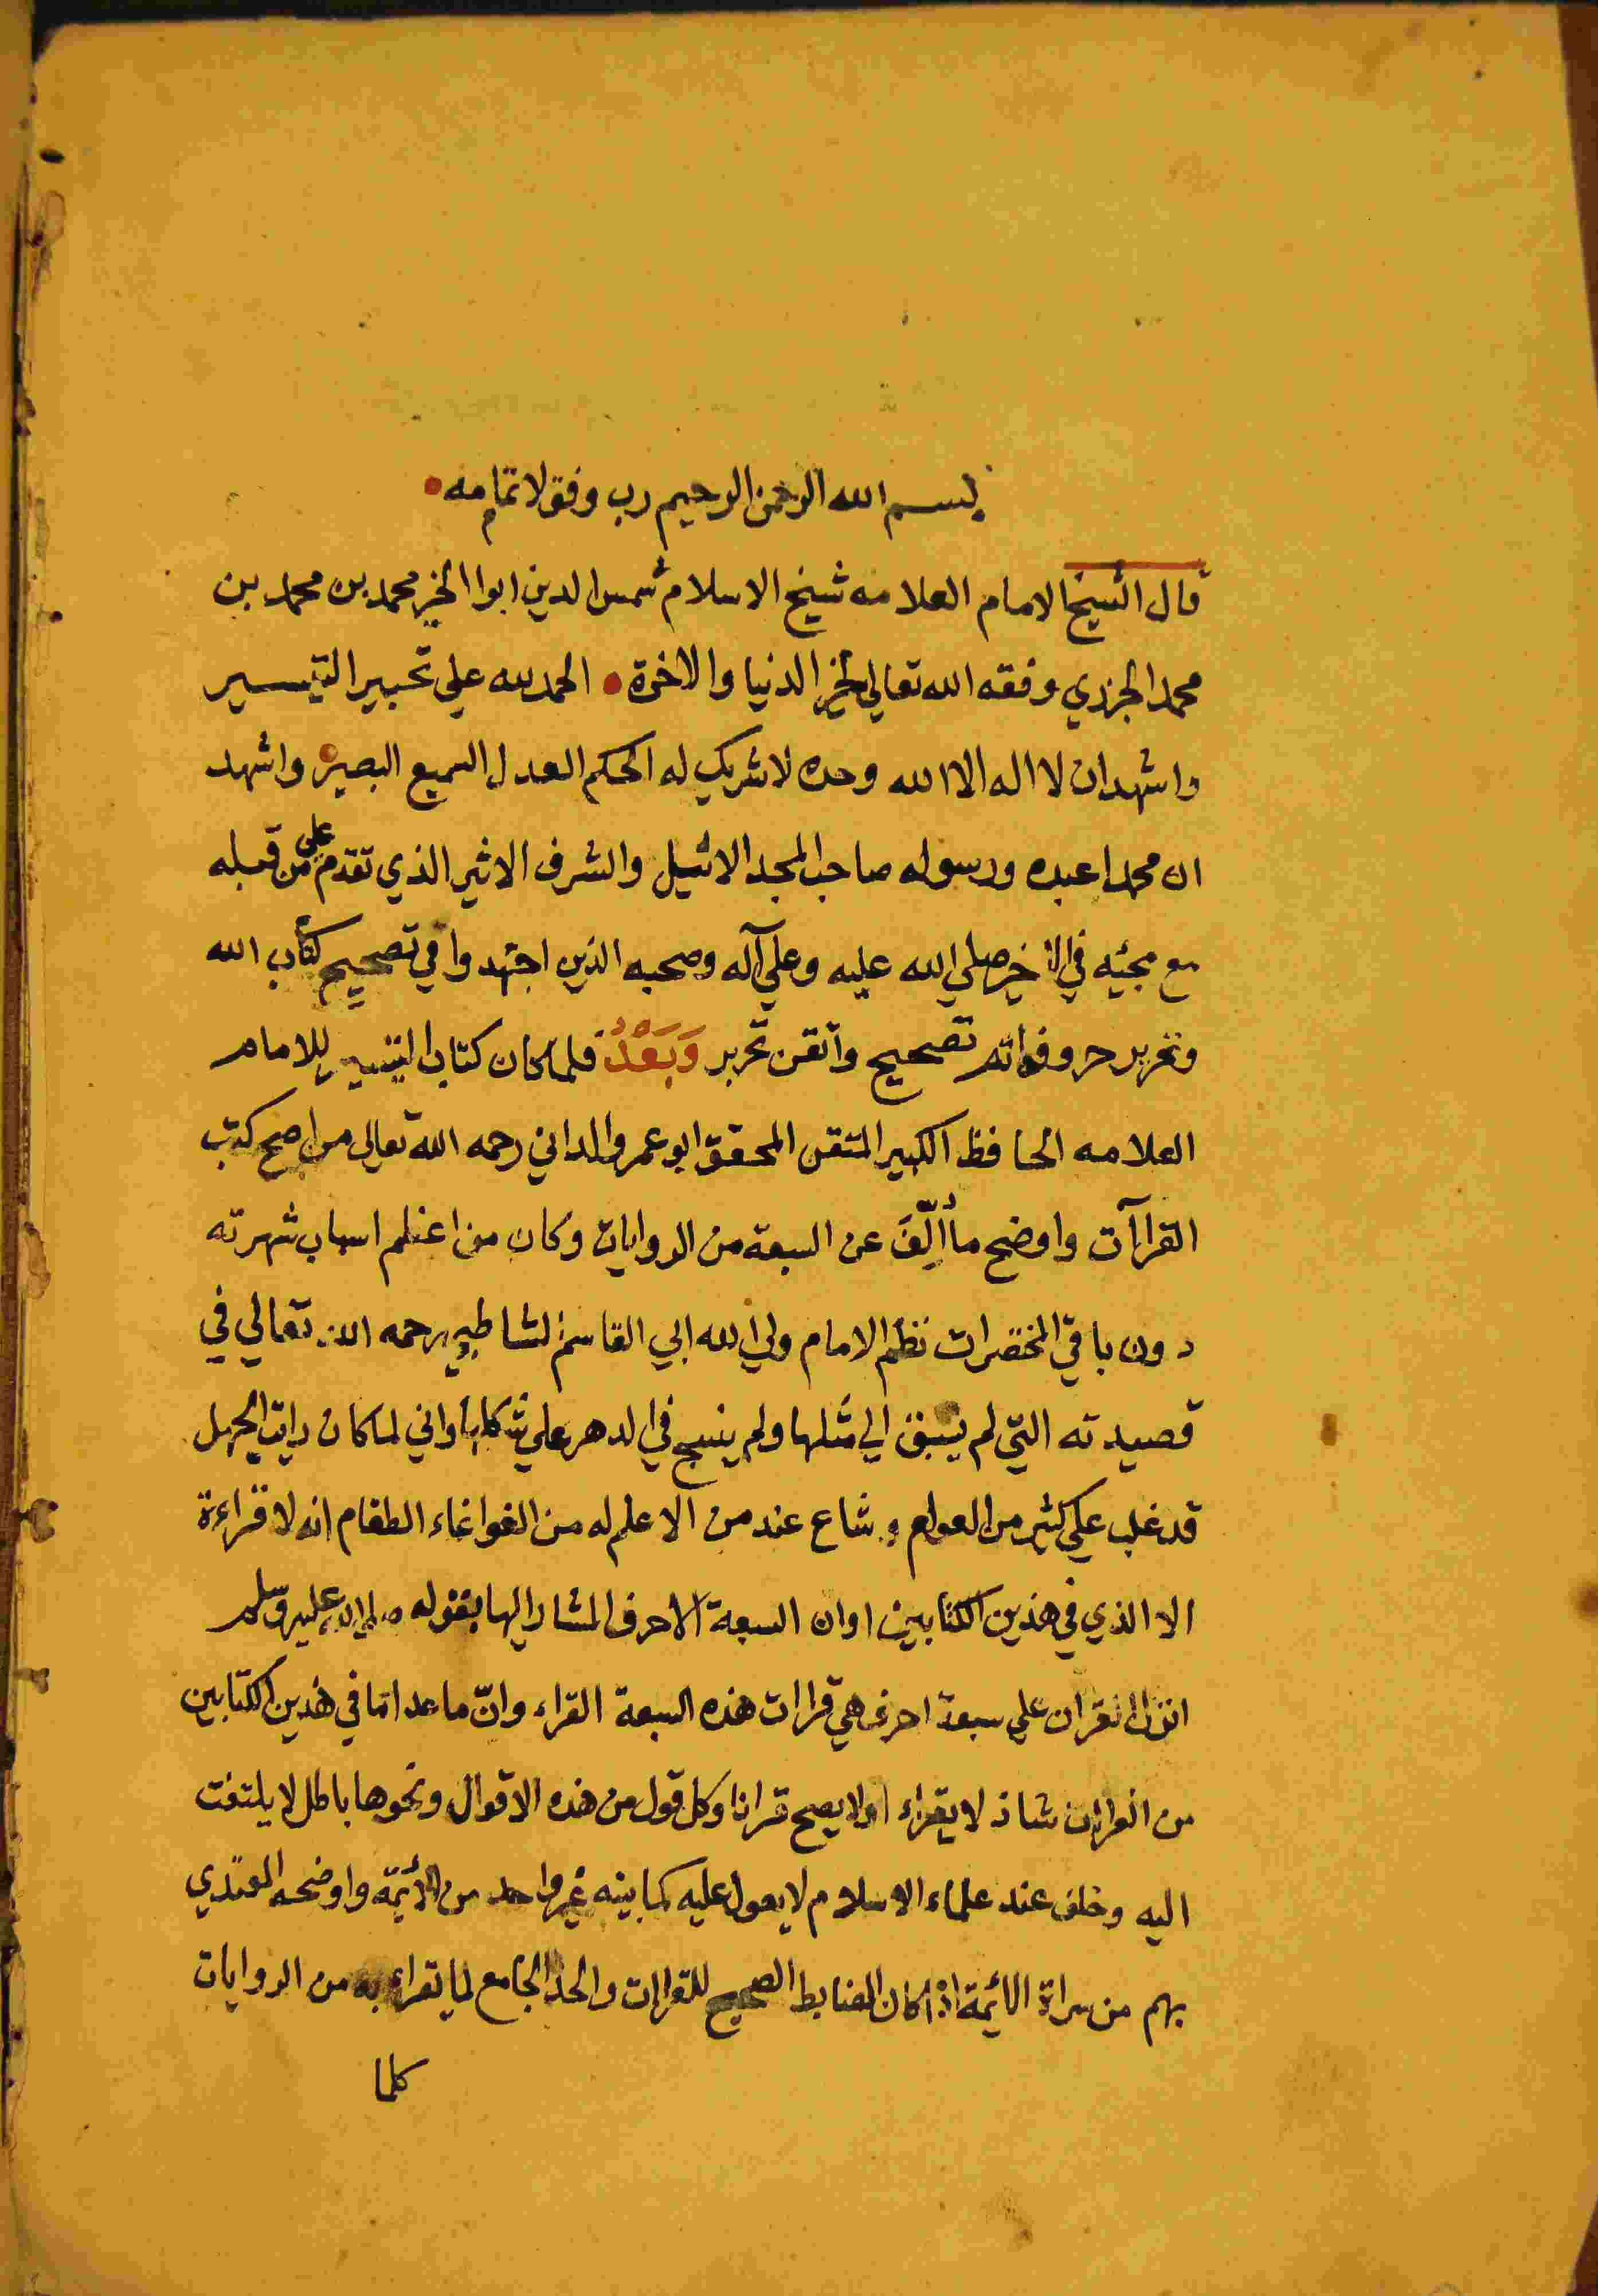 بسم الله الرحمن الرحيم رب وفق لاتمامه
قال الشيخ الامام العلامه شيخ الاسلام شمس الدين ابوا الخير محمد بن محمد بن
محمد الجزري وفقه الله تعالي لخير الدنيا والاخرة الحمد لله علي تحبير التيسير
واشهد ان لا اله الا الله وحده لا شريك له الحكم العدل السميع البصير واشهد
ان محمدا عبده ورسوله صاحب المجد الاثيل والشرف الاثير الذي تقدم علي من قبله
مع مجئيه في الاخير صلي الله عليه وعلي آله وصحبه الذين اجتهدوا في تصحيح كتاب الله
وتحرير حروفه اتم تصحيح واتقن تحرير وَبَعْدُ فلما كان كتاب التيسير للامام
العلامه الحافظ الكبير المتقن المحقق ابو عمرو الداني رحمه الله تعالى من اصح كتب
القراآت واوضح ما أُلِّفَ عن السبعة من الروايات وكان من اعظم اسباب شهرته
دون باقي المختصرات نظم الامام ولي الله ابي القاسم الشاطبي رحمه الله تعالي في
قصيدته التي لم يسبق الي مثلها ولم ينسج في الدهر علي شكلها واني لما كان رايت الجهل
قد غلب علي كثير من العوام وشاع عند من لا علم له من الغواغاء الطغام انه لا قراءة
الا الذي في هذين الكتابين او ان السبعة الاحرف المشار اليها بقوله صلى الله عليه وسلم
انزل القران علي سبعة احرف هي قراات هذه السبعة القراء وانّ ما عدا ما في هذين الكتابين
من القراات شاذ لا يقراء اولا يصح قرانا وكل قول من هذه الاقوال ونحوها باطل لا يلتفت
اليه وخلف عند علماء الاسلام لا يعول عليه كما بينه غير واحد من الأئمة واوضحه المقتدي
بهم من سراة الائمة اذ كان الضابط الصحيح للقراات والحد الجامع لما يقراء به من الروايات
كلما